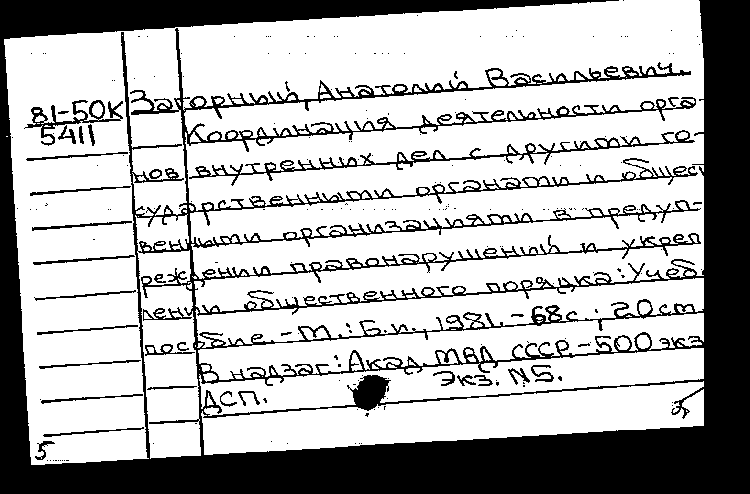 81-50К
5411
Загорный, Анатолий Васильевич.
Координация деятельности орга-
нов внутренних дел с другими го-
сударственными органами и общест
венными организациями в предуп-
реждении правонарушений и укреп
лении общественного порядка: Учеб.
пособие. - М.: Б.и., 1981. - 68с.; 20см.
В надзаг: Акад. МВД СССР. - 500 экз
ДСП. Экз. N5.
5